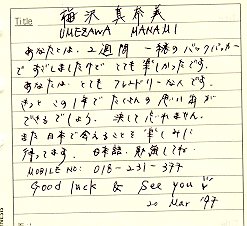 Title
梅沢真奈美
UMEZAWA MANAMI
あなたとは、2週間 一緒のバックパッカー
ですごしましたけど とても楽しかったです。
あなたは、とても フレンドリーな人です。
きっと この1年で たくさんの 思い出が
できるでしょう。 決して忘れません。
また 日本で会えることを 楽しみに
待ってます。 日本語、勉強してね。
MOBILE NO: 018-231-377
Good luck & See you
20 Mar '97